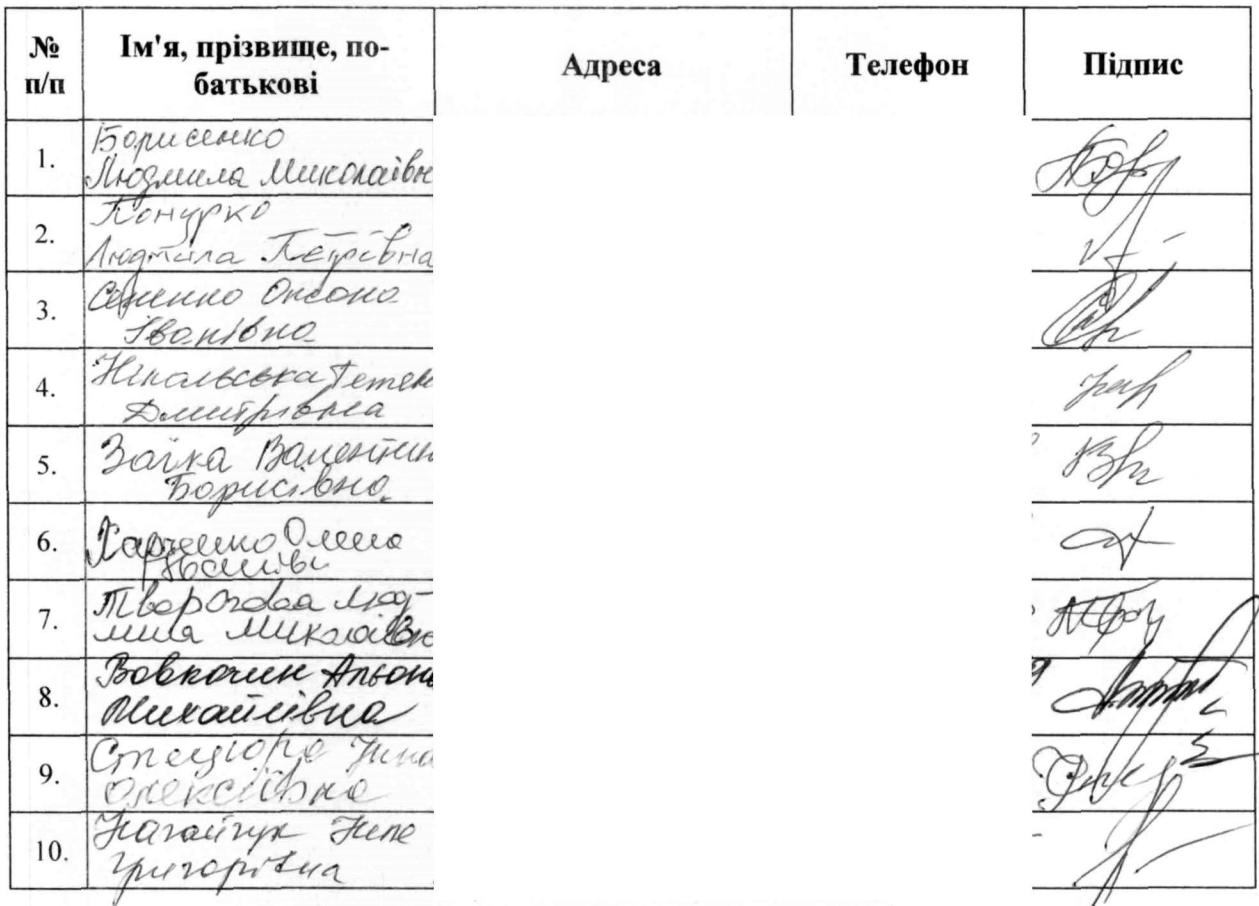 № п/п Ім'я, прізвище, по-батькові Адреса Телефон Підпис
1. Борисенко
Людмила Миколаївн
2. Конурко
Людмила Петрівна
3. Оксана
Іванівна
4. Нікольська Тетян
Дмитрівна
5. Заїка Валентин
Борисівна
6. Харченко Олена
7. Людмила Миколаївн
8. Вовкочин Альона
Михайлівна
9. Стецюра Ніна
Олексіївна
10. Нагайчук Ніна
Григорівна